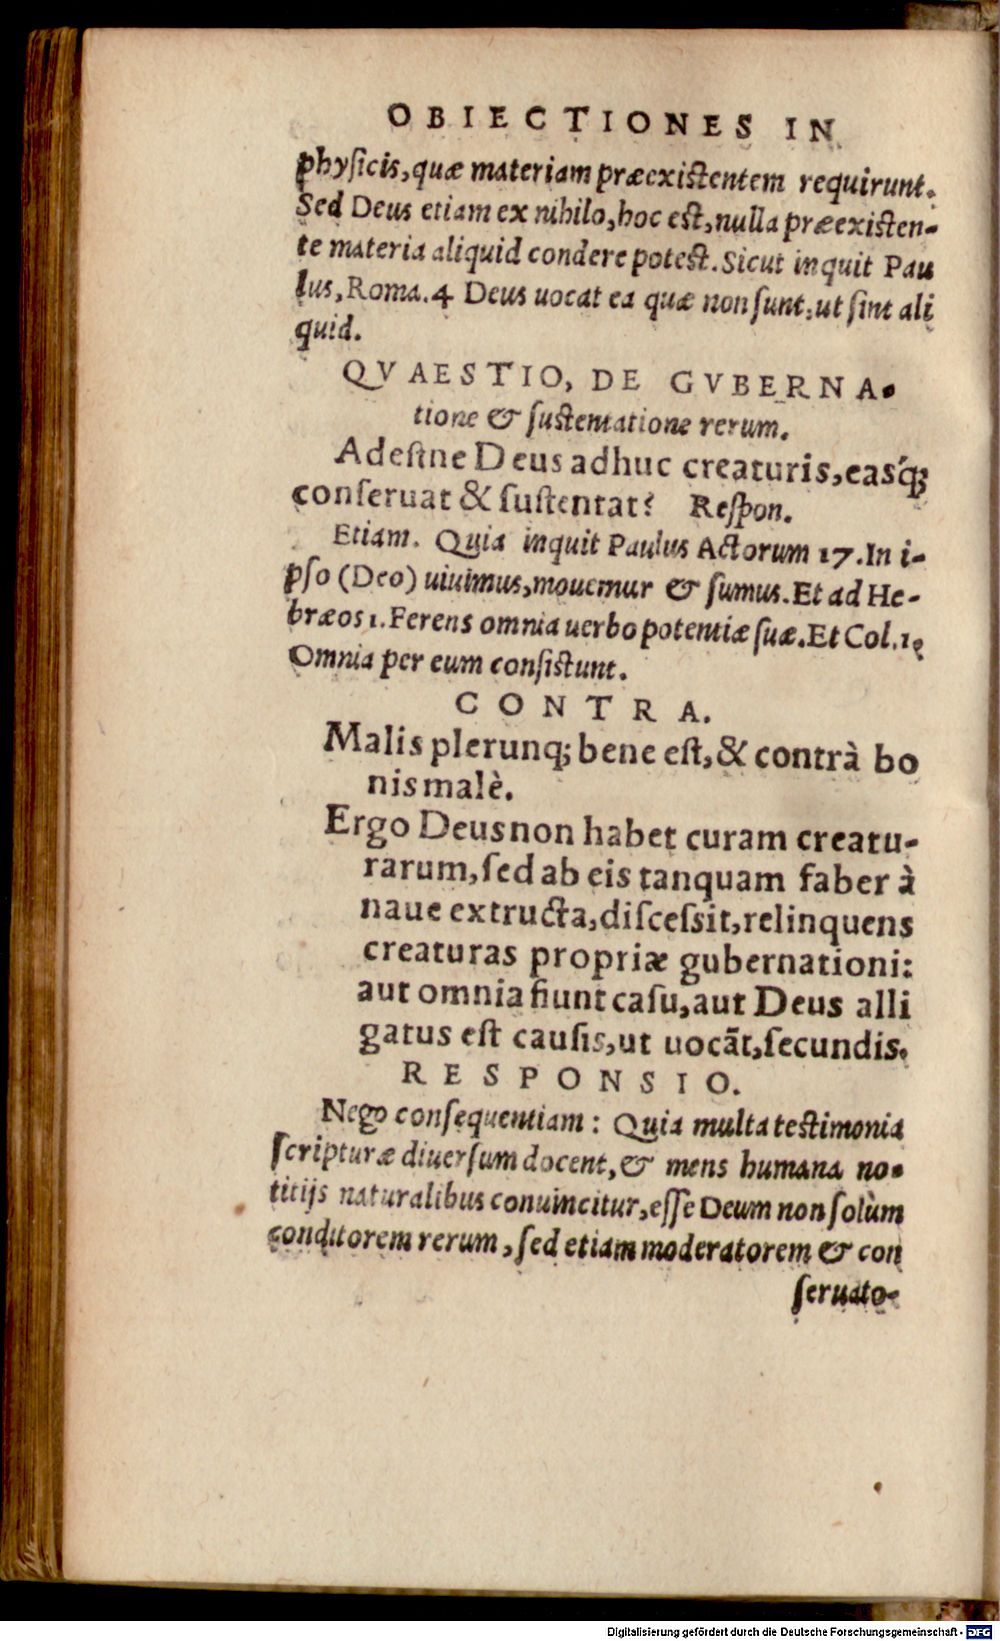 OBIECTIONES IN
physicis, quæ materiam præexistentem requirunt.
Sed Deus etiam ex nihilo, hoc est, nulla præexisten-
te materia aliquid condere potest. Sicut inquit Pau
lus, Roma. 4 Deus uocat ea quæ non sunt, ut sint ali
quid.
QVAESTIO, DE GVBERNA-
tione & sustentatione rerum.
Adestne Deus adhuc creaturis, easq́;
conseruat & sustentat? Respon.
Etiam. Quia inquit Paulus Actorum 17. In i-
pso (Deo) uiuimus, mouemur & sumus. Et ad He-
bræos 1. Ferens omnia uerbo potentiæ suæ. Et Col. 1.
Omnia per eum consistunt.
CONTRA.
Malis plerunq; bene est, & contrà bo
nis malè.
Ergo Deus non habet curam creatu-
rarum, sed ab eis tanquam faber à
naue extructa, discessit, relinquens
creaturas propriæ gubernationi:
aut omnia fiunt casu, aut Deus alli
gatus est causis, ut uocāt, secundis.
RESPONSIO.
Nego consequentiam: Quia multa testimonia
scripturæ diuersum docent, & mens humana no-
titijs naturalibus conuincitur, esse Deum non solùm
conditorem rerum, sed etiam moderatorem & con
seruato-
Digitalisierung gefördert durch die Deutsche Forschungsgemeinschaft - DFG